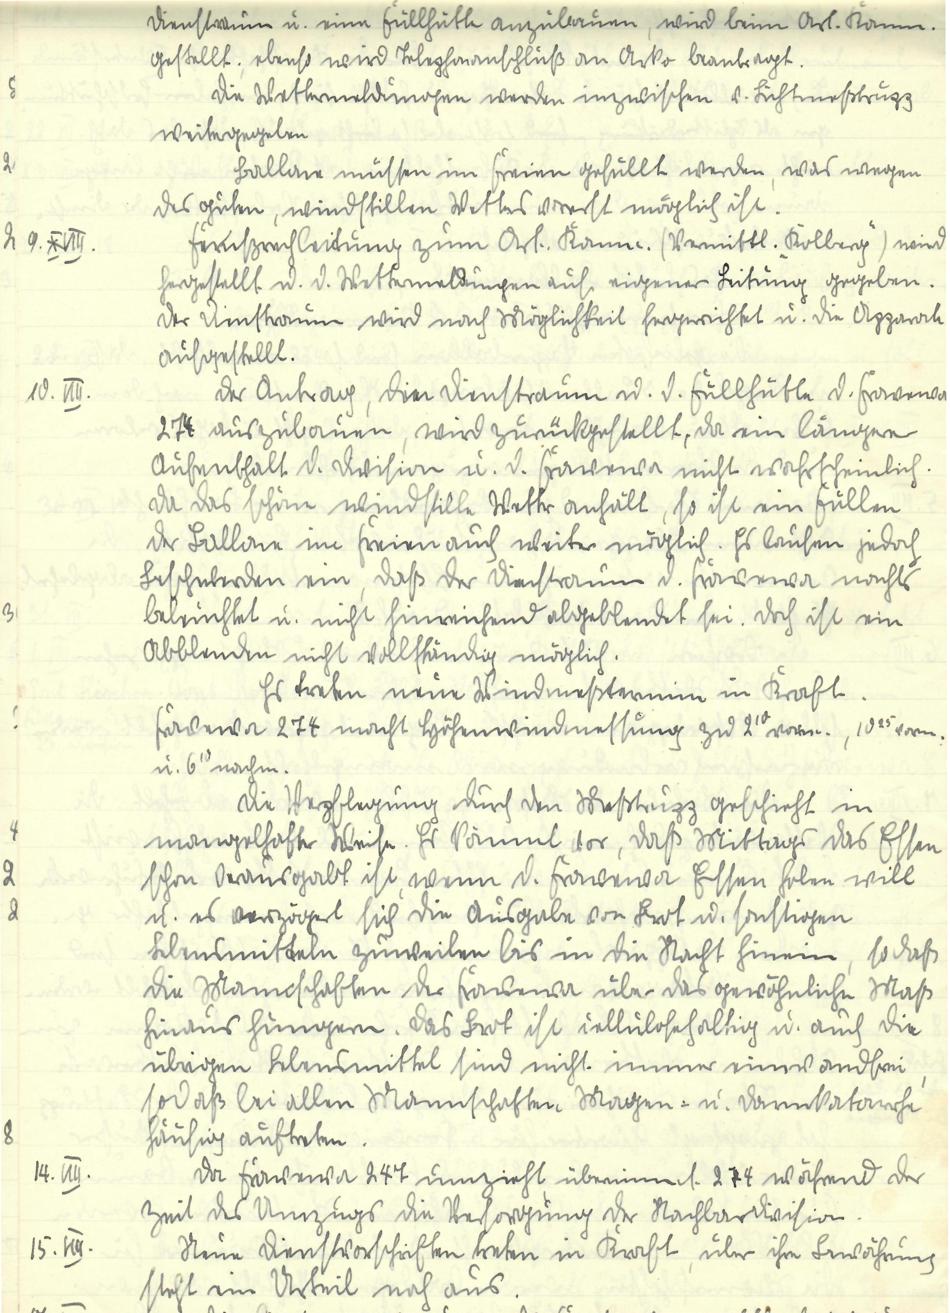 Dienstraum u. eine Füllhütte anzubauen, wird beim Art. Kom.
gestellt, ebenso wird Telephonanschluß an Arko beantragt.
Die Wettermeldungen werden inzwischen v. Lichtmeßtrupp
weitergegeben
2 Ballone müssen im Freien gefüllt werden, was wegen
des guten, windstillen Wetters vorerst möglich ist.
9. VIII. Fernsprechleitung zum Art. Kom. (Vermittl. "Kolberg") wird
hergestellt u. d. Wettermeldungen auf eigener Leitung gegeben.
Der Dienstraum wird nach Möglichkeit hergerichtet u. die Apparate
aufgestellt.
10. VIII. Der Antrag, den Dienstraum u. d. Füllhütte d. Frawewa
274 auszubauen, wird zurückgestellt, da ein längerer
Aufenthalt d. Division u. d. Frawewa nicht wahrscheinlich.
Da das schöne windstille Wetter anhält, so ist ein Füllen
der Ballone im Freien auch weiter möglich. Es laufen jedoch
Beschwerden ein, daß der Dienstraum d. Frawewa nachts
3 beleuchtet u. nicht hinreichend abgeblendet sei. Doch ist ein
Abblenden nicht vollständig möglich.
Es treten neue Windmeßtermine in Kraft.
Frawewa 274 macht Höhenwindmessung zu 2¹⁰ vorm., 10²⁵ vorm.
u. 6¹⁰ nachm.
Die Verpflegung durch den Meßtrupp geschieht in
4 mangelhafter Weise. Es kommt vor, daß Mittags das Essen
2 schon verausgabt ist, wenn d. Frawewa Essen holen will
2 u. es verzögert sich die Ausgabe von Brot u. sonstigen
Lebensmitteln zuweilen bis in die Nacht hinein, sodaß
die Mannschaften der Frawewa über das gewöhnliche Maß
hinaus hungern. Das Brot ist cellulosehaltig u. auch die
übrigen Lebensmittel sind nicht immer einwandfrei,
sodaß bei allen Mannschaften Magen- u. Darmkatarrhe
8 häufig auftreten.
14. VIII. Da Frawewa 247 umzieht übernimmt 274 während der
Zeit des Umzugs die Versorgung der Nachbardivision.
15. VIII. Neue Dienstvorschriften treten in Kraft, über ihre Bewährung
steht ein Urteil noch aus.